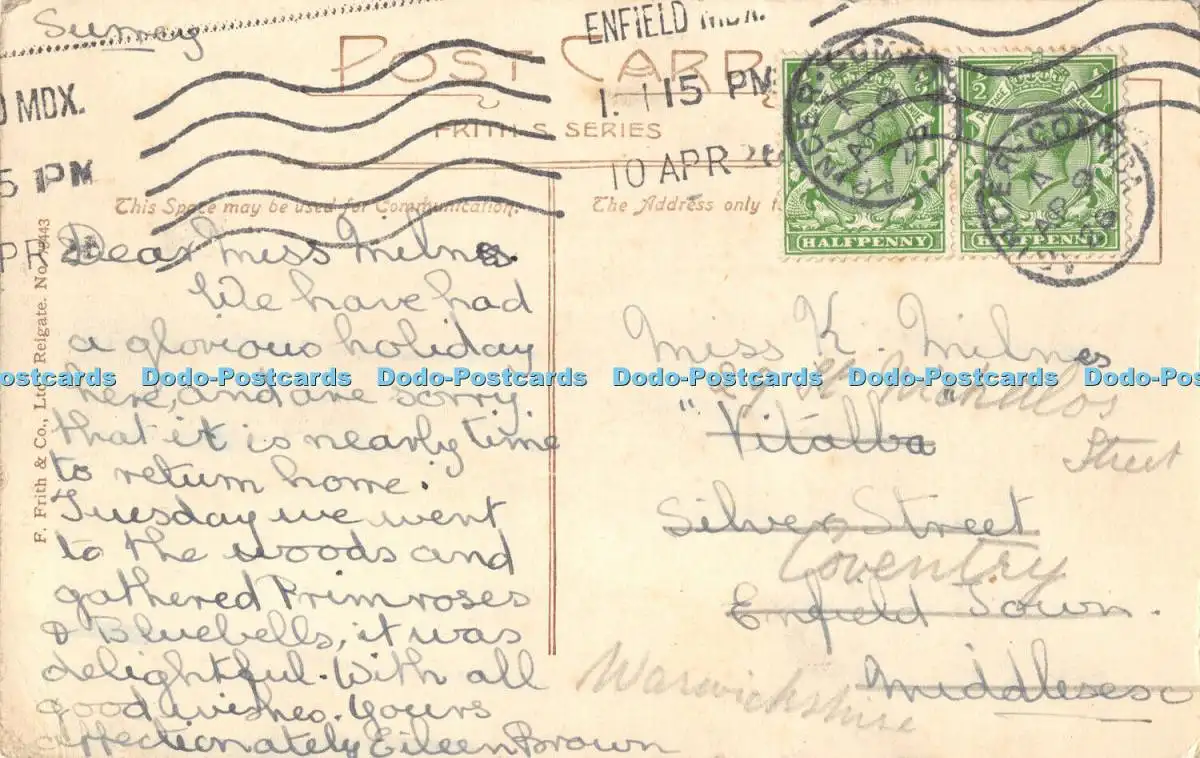 Surrey
ENFIELD MDX.
1.15 PM
10 APR 26
MDX.
5 PM
POST CARD
FRITH'S SERIES
This Space may be used for Communication.
The Address only t
HALFPENNY
HALFPENNY
F. Frith & Co., Ltd. Reigate. No.
Dear Miss Milnes.
We have had
a glorious holiday
here, and are sorry
that it is nearly time
to return home.
Tuesday we went
to the woods and
gathered Primroses
& Bluebells, it was
delightful. With all
good wishes. Yours
affectionately Eileen Brown
Miss K. Milnes
29 St
"Vitalba"
Street
Silver Street
Coventry
Enfield Town.
Warwickshire
Middlesex
Dodo-Postcards Dodo-Postcards Dodo-Postcards Dodo-Postcards